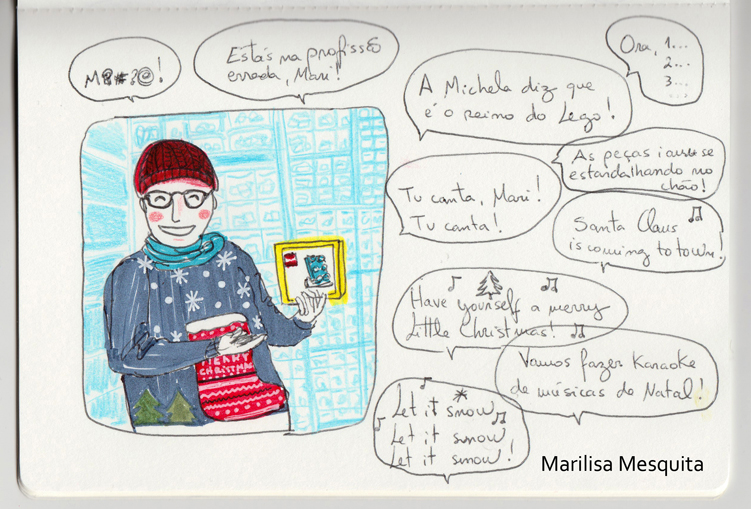 M@#?@!
Estás na profissão
errada, Mari!
A Michela diz que
é o reino do Lego!
Ora, 1...
2...
3...
...
As peças iam-se
estardalhando no
chão!
Tu canta, Mari!
Tu canta!
Santa Claus
is coming to town!
Have yourself a merry
little Christmas!
Vamos fazer Karaoke
de músicas do Natal!
Let it snow
Let it snow
Let it snow!
MERRY
CHRISTMAS
Marilisa Mesquita